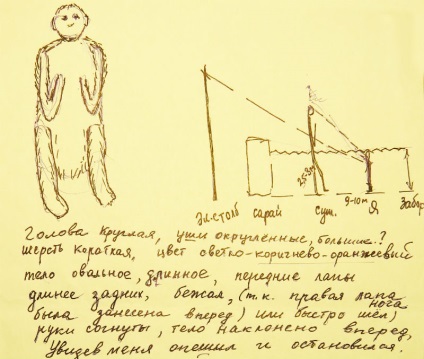 эл-столб сарай сущ. Я Забор
2,5-3м
9-10м
Голова круглая, уши округленные, большие.?
шерсть короткая, цвет светло-коричнево-оранжевый
тело овальное, длинное, передние лапы
длинее задних, бежал, (т.к. правая лапа
нога
была занесена вперед) или быстро шел)
руки согнуты, тело наклонено вперед,
Увидев меня опешил и остановился.